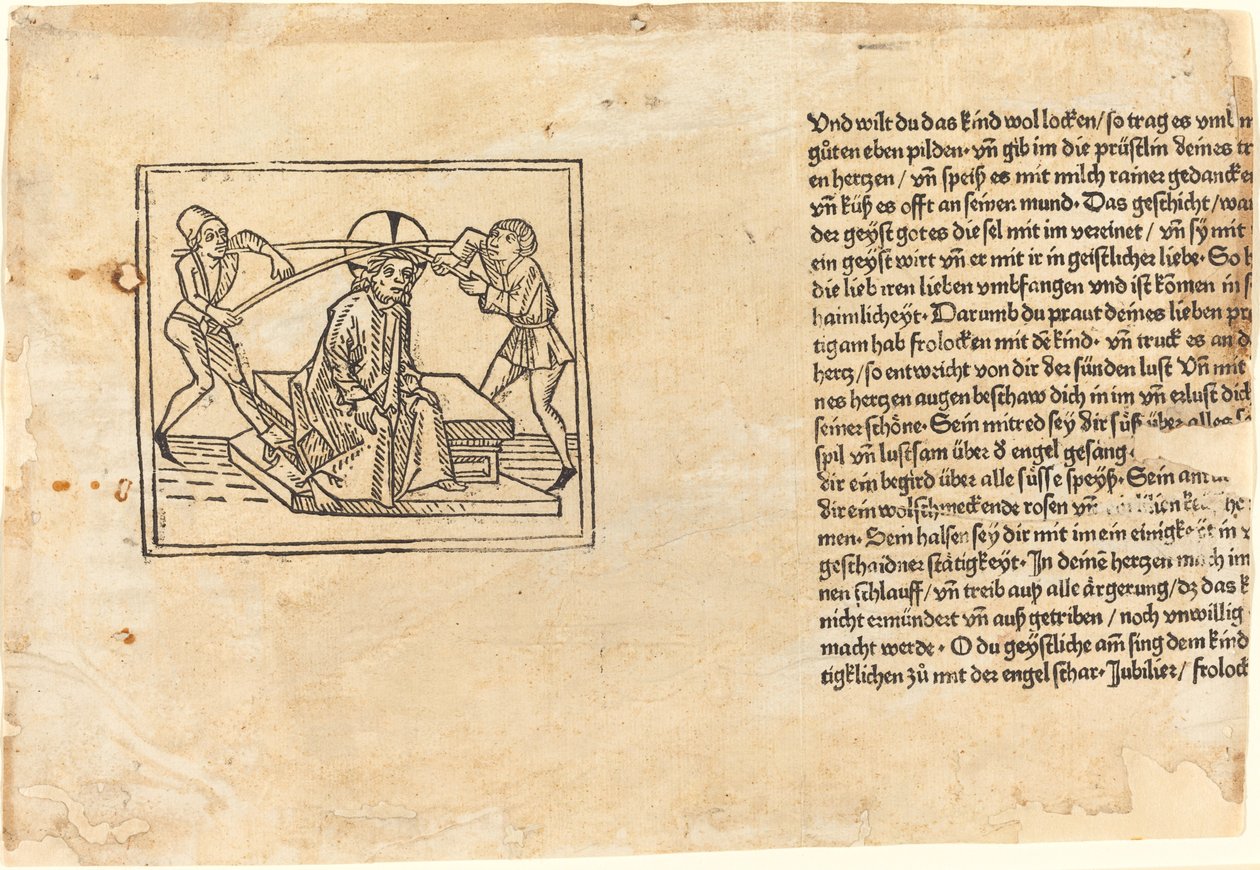 Vnd wilt du das kind wol locken/so trag es vmb
gůten eben pilden· vn̄ gib im die prüstlin deines
en hertzen / vn̄ speiß es mit milch rainer gedancken
vn̄ küß es offt an seinen mund· Das geschicht/
der geyst gotes die sel mit im vereinet / vn̄ sy mit
ein geyst wirt vn̄ er mit ir in geistlicher liebe· So
die lieb iren lieben vmbfangen vnd ist kōmen in
haimlicheyt· Darumb du praut deines lieben
tigam hab frolocken mit dē kind· vn̄ truck es an
hertz/so entweicht von dir der sünden lust Vn̄ mit
nes hertzen augen beschaw dich in im vn̄ erlust dich
seiner schöne· Sein mitred sey dir süß über alles
spil vn̄ lustsam über d̓ engel gesang·
dir ein begird über alle süsse speyß· Sein
dir ein wolschmeckende rosen vn̄
men· Sein halsen sey dir mit im ein einigkeyt in
geschaidner stätigkeyt· In deinē hertzen mach im
nen schlauff/vn̄ treib auß alle ärgerung/dz das
nicht ermündert vn̄ auß getriben / noch vnwillig
macht werde· O du geystliche am̄ sing dem kind
tigklichen zů mit der engel schar· Jubilier/ frolock